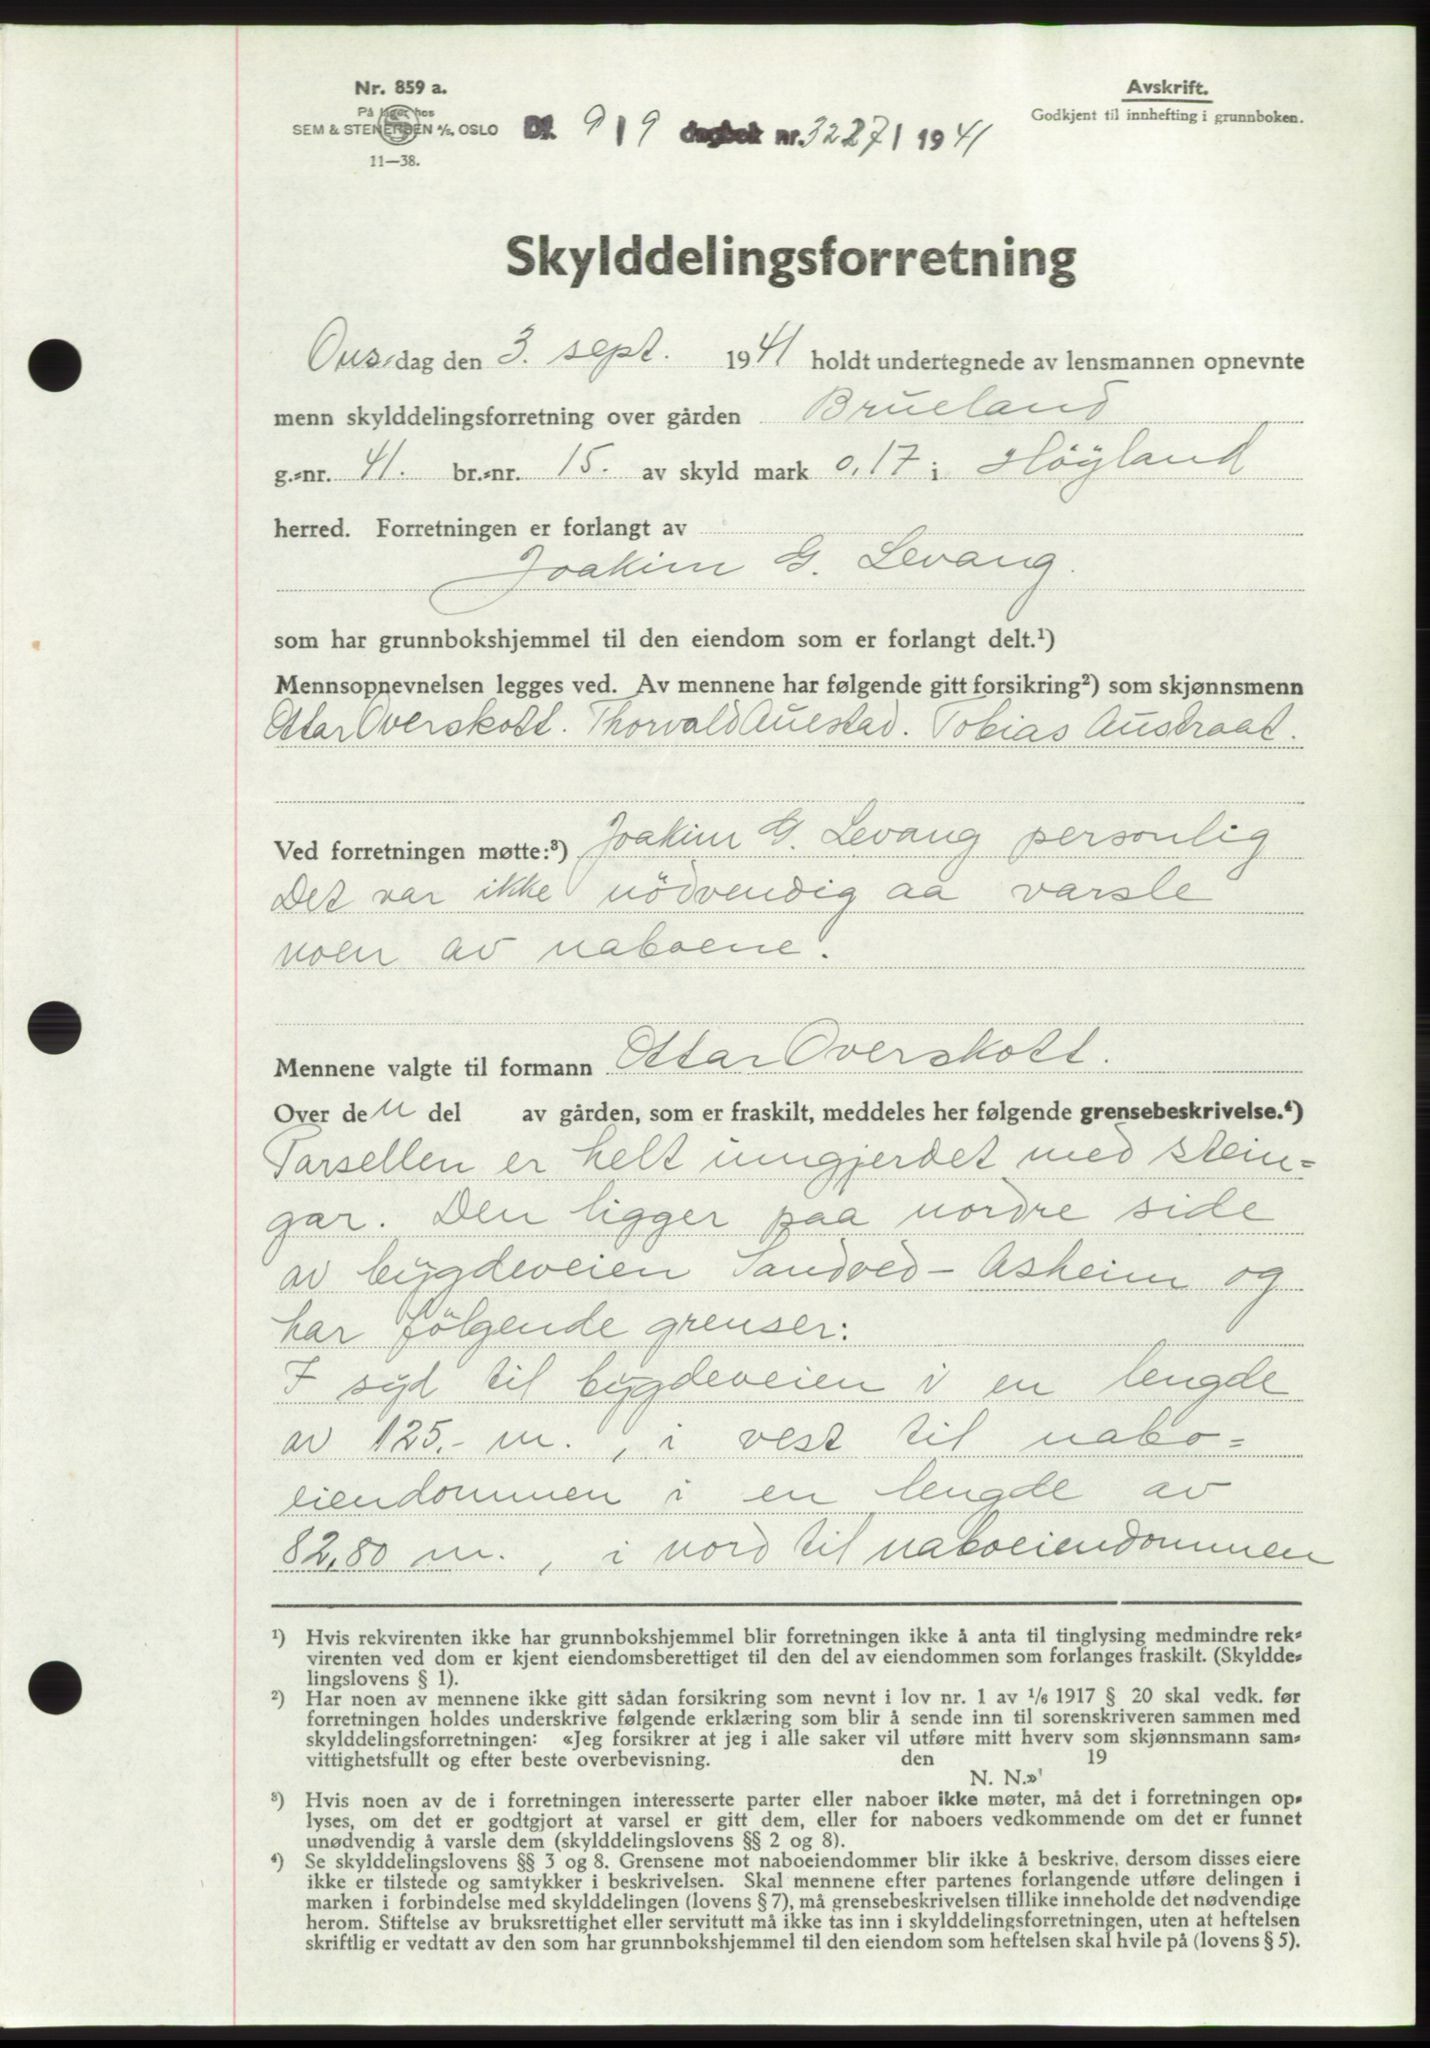 Nr. 859 a.
På lager hos
SEM & STENERSEN A/S, OSLO
11—38.
Avskrift.
Godkjent til innhefting i grunnboken.
Df. 9 / 9 dagbok nr. 3227 / 19 41
Skylddelingsforretning
Onsdag den 3. sept. 1941 holdt undertegnede av lensmannen opnevnte
menn skylddelingsforretning over gården Brueland
g.=nr. 41. br.=nr. 15. av skyld mark 0,17 i Höyland
herred. Forretningen er forlangt av
Joakim G. Levang.
som har grunnbokshjemmel til den eiendom som er forlangt delt.¹)
Mennsopnevnelsen legges ved. Av mennene har følgende gitt forsikring²) som skjønnsmenn
Ottar Overskott. Thorvald Auestad. Tobias Austraat.
Ved forretningen møtte:³) Joakim G. Levang personlig
Det var ikke nödvendig aa varsle
noen av naboene.
Mennene valgte til formann Ottar Overskott.
Over den del av gården, som er fraskilt, meddeles her følgende grensebeskrivelse.⁴)
Parsellen er helt inngjerdet med stein=
gar. Den ligger paa nordre side
av bygdeveien Sandved - Asheim og
har fölgende grenser:
I syd til bygdeveien i en lengde
av 125.- m. , i vest til nabo=
eiendommen i en lengde av
82,80 m. , i nord til naboeiendommen
¹) Hvis rekvirenten ikke har grunnbokshjemmel blir forretningen ikke å anta til tinglysing medmindre rek=
virenten ved dom er kjent eiendomsberettiget til den del av eiendommen som forlanges fraskilt. (Skyldde=
lingslovens § 1).
²) Har noen av mennene ikke gitt sådan forsikring som nevnt i lov nr. 1 av 1/6 1917 § 20 skal vedk. før
forretningen holdes underskrive følgende erklæring som blir å sende inn til sorenskriveren sammen med
skylddelingsforretningen: «Jeg forsikrer at jeg i alle saker vil utføre mitt hverv som skjønnsmann sam=
vittighetsfullt og efter beste overbevisning. den 19
N. N.»
³) Hvis noen av de i forretningen interesserte parter eller naboer ikke møter, må det i forretningen op=
lyses, om det er godtgjort at varsel er gitt dem, eller for naboers vedkommende om det er funnet
unødvendig å varsle dem (skylddelingslovens §§ 2 og 8).
⁴) Se skylddelingslovens §§ 3 og 8. Grensene mot naboeiendommer blir ikke å beskrive, dersom disses eiere
ikke er tilstede og samtykker i beskrivelsen. Skal mennene efter partenes forlangende utføre delingen i
marken i forbindelse med skylddelingen (lovens § 7), må grensebeskrivelsen tillike inneholde det nødvendige
herom. Stiftelse av bruksrettighet eller servitutt må ikke tas inn i skylddelingsforretningen, uten at heftelsen
skriftlig er vedtatt av den som har grunnbokshjemmel til den eiendom som heftelsen skal hvile på (lovens § 5).